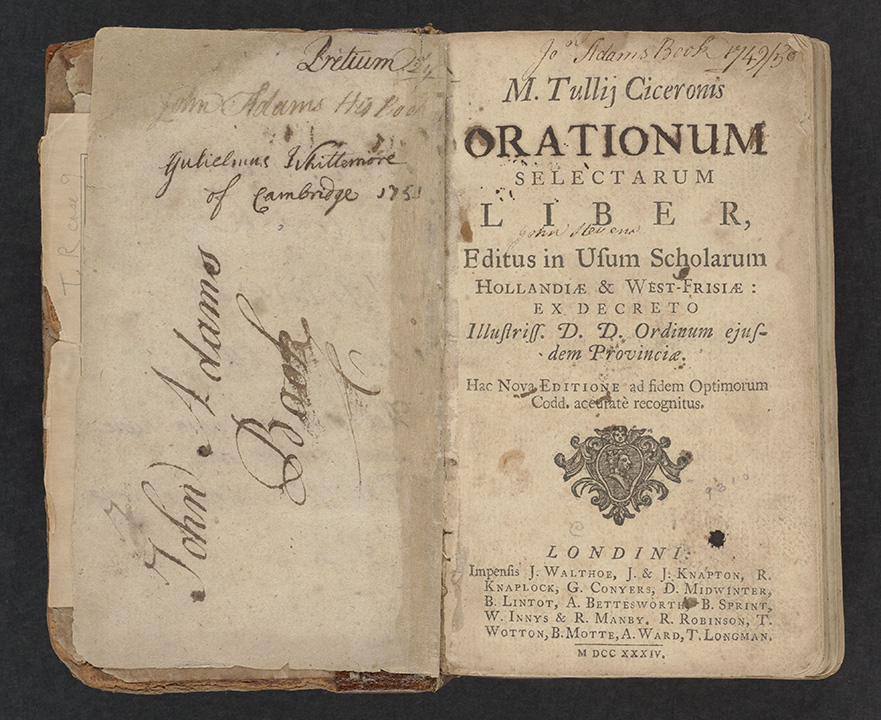 Pretium
John Adams His Book
Gulielmus Whittemore
of Cambridge 1751
John Adams
Book
T. R case 9
Jon Adams Book 1749/50
M. Tullij Ciceronis
ORATIONUM
SELECTARUM
LIBER,
John Stevens
Editus in Uſum Scholarum
HOLLANDIÆ & WEST-FRISIÆ:
EX DECRETO
Illuſtriſſ. D. D. Ordinum ejuſ-
dem Provinciæ.
Hac Nova EDITIONE ad fidem Optimorum
Codd. accuratè recognitus.
9310
LONDINI:
Impenſis J. WALTHOE, J. & J. KNAPTON, R.
KNAPLOCK, G. CONYERS, D. MIDWINTER,
B. LINTOT, A. BETTESWORTH, B. SPRINT,
W. INNYS & R. MANBY. R. ROBINSON, T.
WOTTON, B. MOTTE, A. WARD, T. LONGMAN.
M DCC XXXIV.